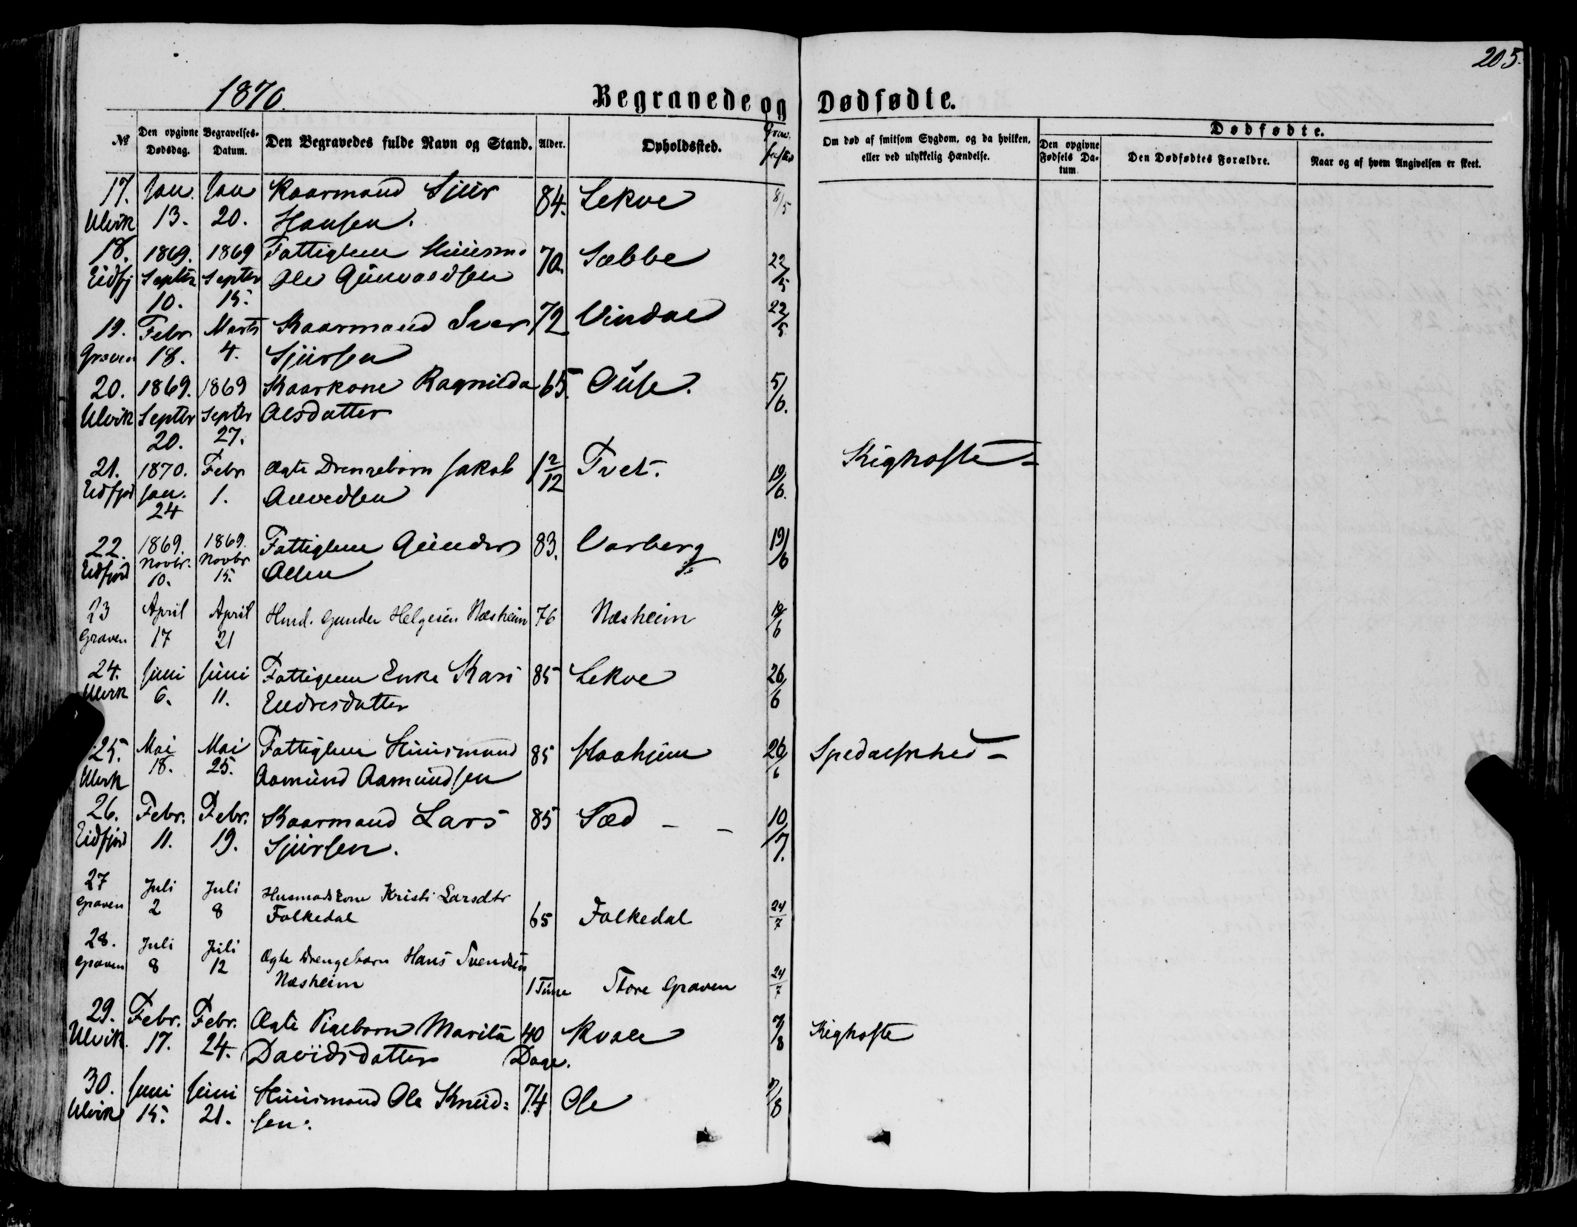 205.
1870.
Begravede og Dødfødte.
№
Den opgivne Dødsdag.
Begravelses-Datum.
Den Begravedes fulde Navn og Stand.
Alder.
Opholdssted.
Om død af smitsom Sygdom, og da hvilken, eller ved ulykkelig Hændelse.
Dødfødte.
Den opgivne Fødsels Datum.
Den Dødfødtes Forældre.
Naar og af hvem Angivelsen er skeet.
17. Jan. Jan Kaarmand Sjur 84. Lekve 8/5
Ulvik 13. 20. Hansen.
18. 1869. 1869 Fattiglem Huusm. 70 Sæbbe 22/5
Eidfj Septbr Septbr Ole Gunvaldsen
10. 15.
19. Febr Marts Kaarmand Iver 72 Vindal 22/5
Graven 18. 4. Sjursen
20. 1869. 1869 Kaarkone Ragnilda 65. Ouse. 5/6.
Ulvik Septbr Septbr Olsdatter
20. 27.
21. 1870. Febr Ægte Drengebarn Jakob 1 2/12 Tvet. 19/6. Kighoste -
Eidfjord Jan. 1.
24
22. 1869. 1869. Fattiglem Gunder 83. Varberg 19/6
Eidfjord Novbr. Novbr Olsen
10. 15.
23 April April Husmd. Gunder Helgesen Næsheim 76 Næsheim 19/6
Graven 17 21
24. Juni Juni Fattiglem Enke Kari 85 Lekve 26/6
Ulvik 6. 11. Endresdatter
25. Mai Mai Fattiglem Huusmand 85 Haahjem 26/6 Spedalskhed -
Ulvik 18. 25. Aamund Aamundsen
26. Febr. Febr. Kaarmand Lars 85 Sæd - - 10/7.
Eidfjord 11. 19. Sjursen.
27 Juli Juli Husmadskone Kristi Larsdtr
Graven 2 8 Folkedal 65 Folkedal 24/7
28. Juli Juli Ægte Drengebarn Hans Svendsen
Graven 8 12 Næsheim 1 Time Store Graven 24/7
29. Febr. Febr. Ægte Pigebarn Marita 40 Kvale 7/8 Kighoste
Ulvik 17. 24. Davidsdatter Dage.
30. Juni Juni Huusmand Ole Knud= 74 Ose 7/8
Ulvik 15. 21. sen.